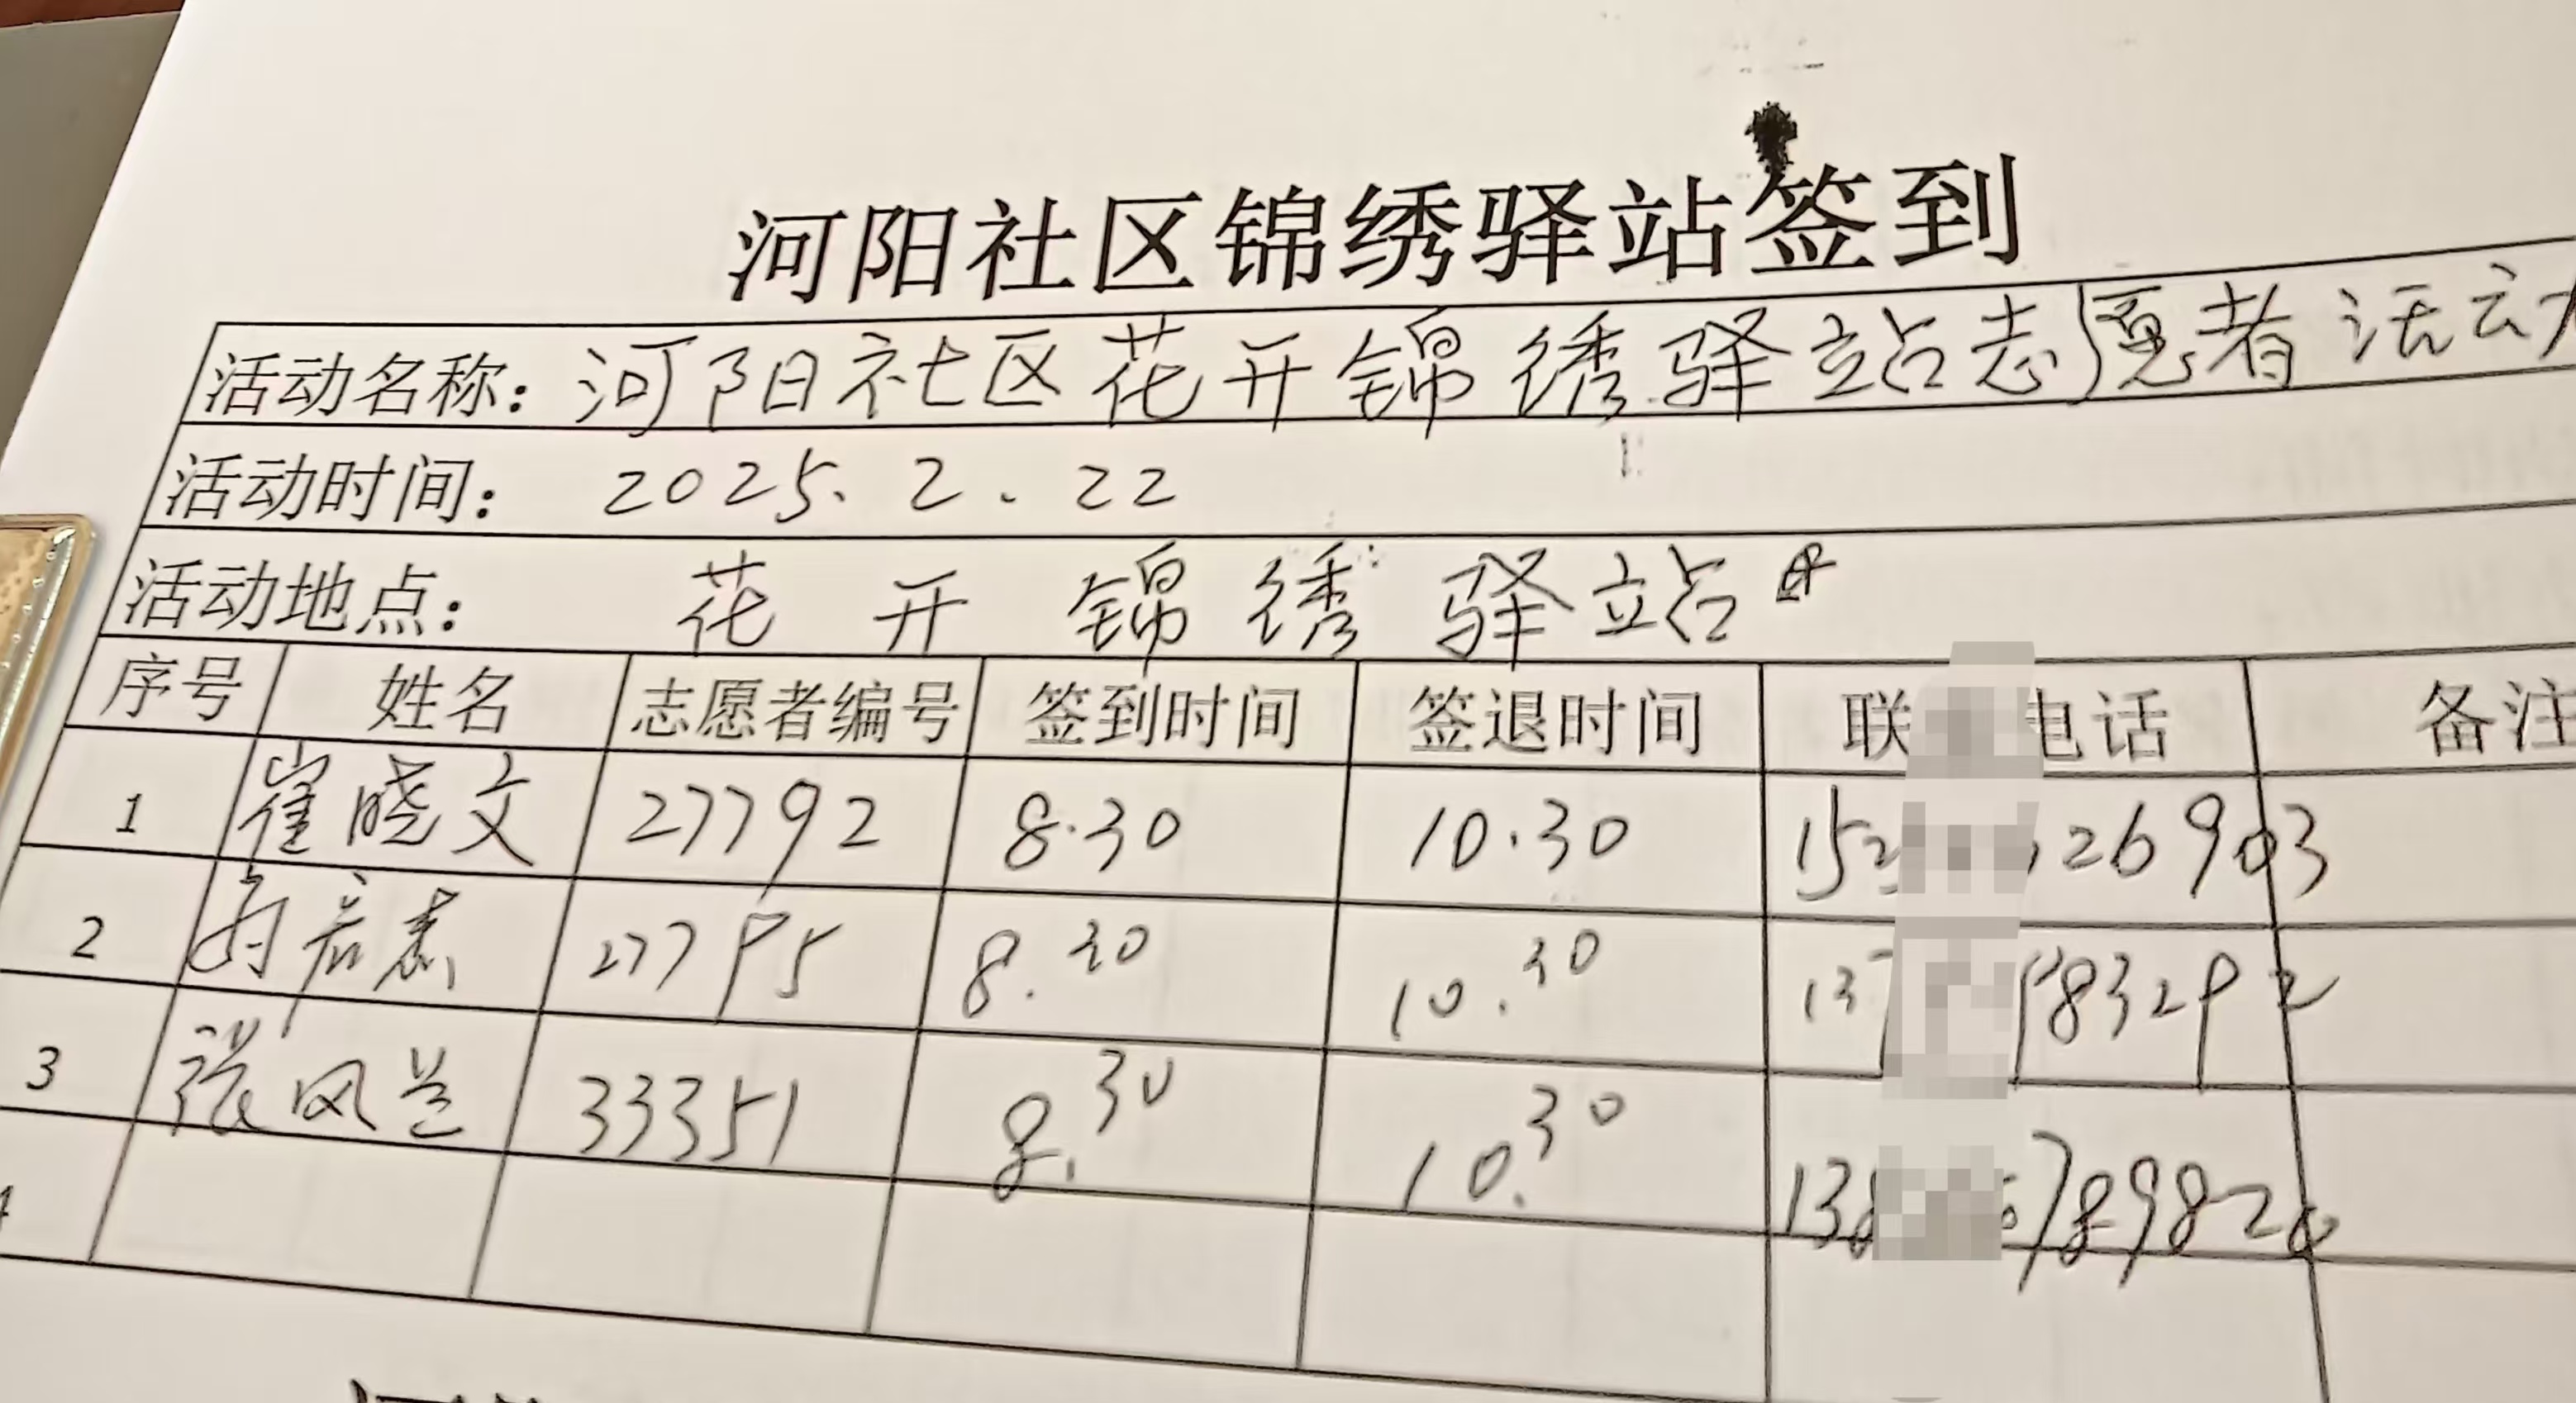 河阳社区锦绣驿站签到
活动名称：河阳社区花开锦绣驿站志愿者活动
活动时间：2025.2.22
活动地点：花开锦绣驿站
序号 姓名 志愿者编号 签到时间 签退时间 联 电话 备注
1 崔晓文 27792 8.30 10.30 26903
2 27795 8.30 10.30 83292
3 张凤兰 33351 8.30 10.30 789820
4